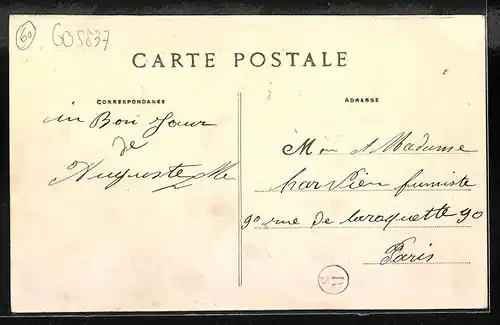 60
605837
CARTE POSTALE
CORRESPONDANCE
ADRESSE
un Bon Jour
de
Auguste
Mon et Madame
fumiste
90 rue de la raquette 90
Paris